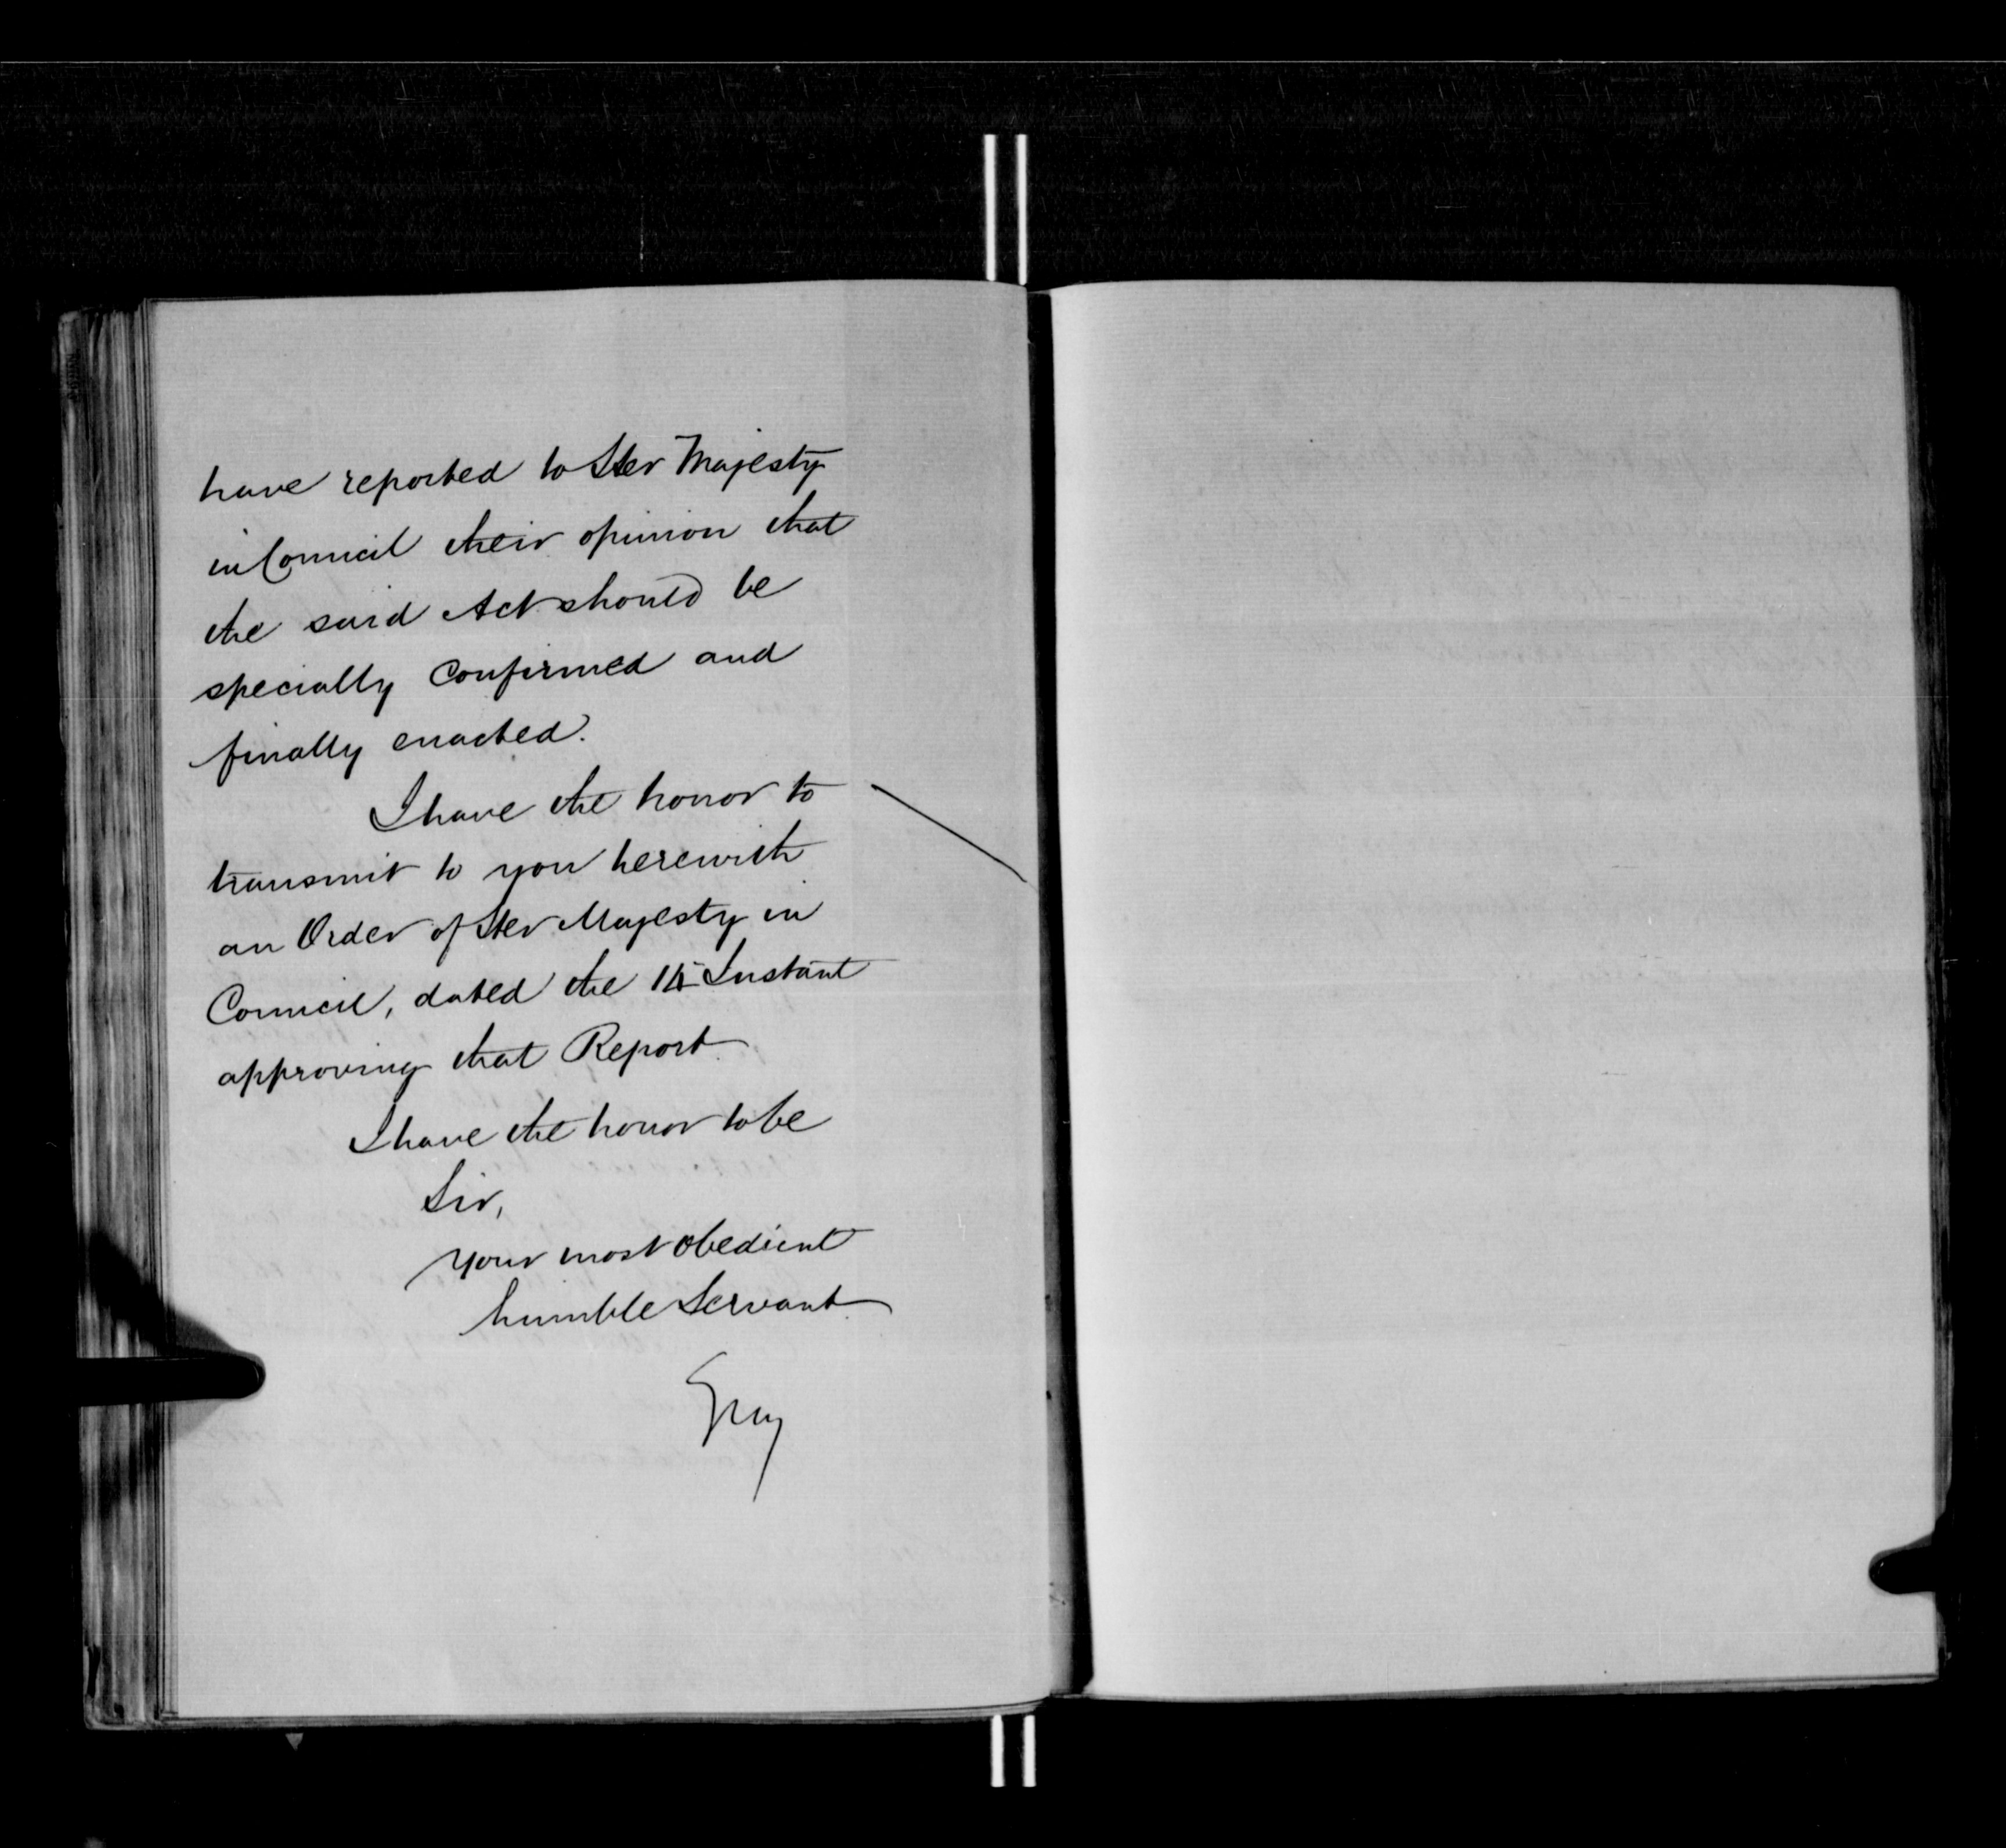 have reported to Her Majesty
in Council their opinion that
the said Act should be
specially Confirmed and
finally enacted.
I have the honor to
transmit to you herewith
an Order of Her Majesty in
Council, dated the Instant
approving that Report.
I have the honor to be
Sir,
Your most obedient
humble Servant.
Grey